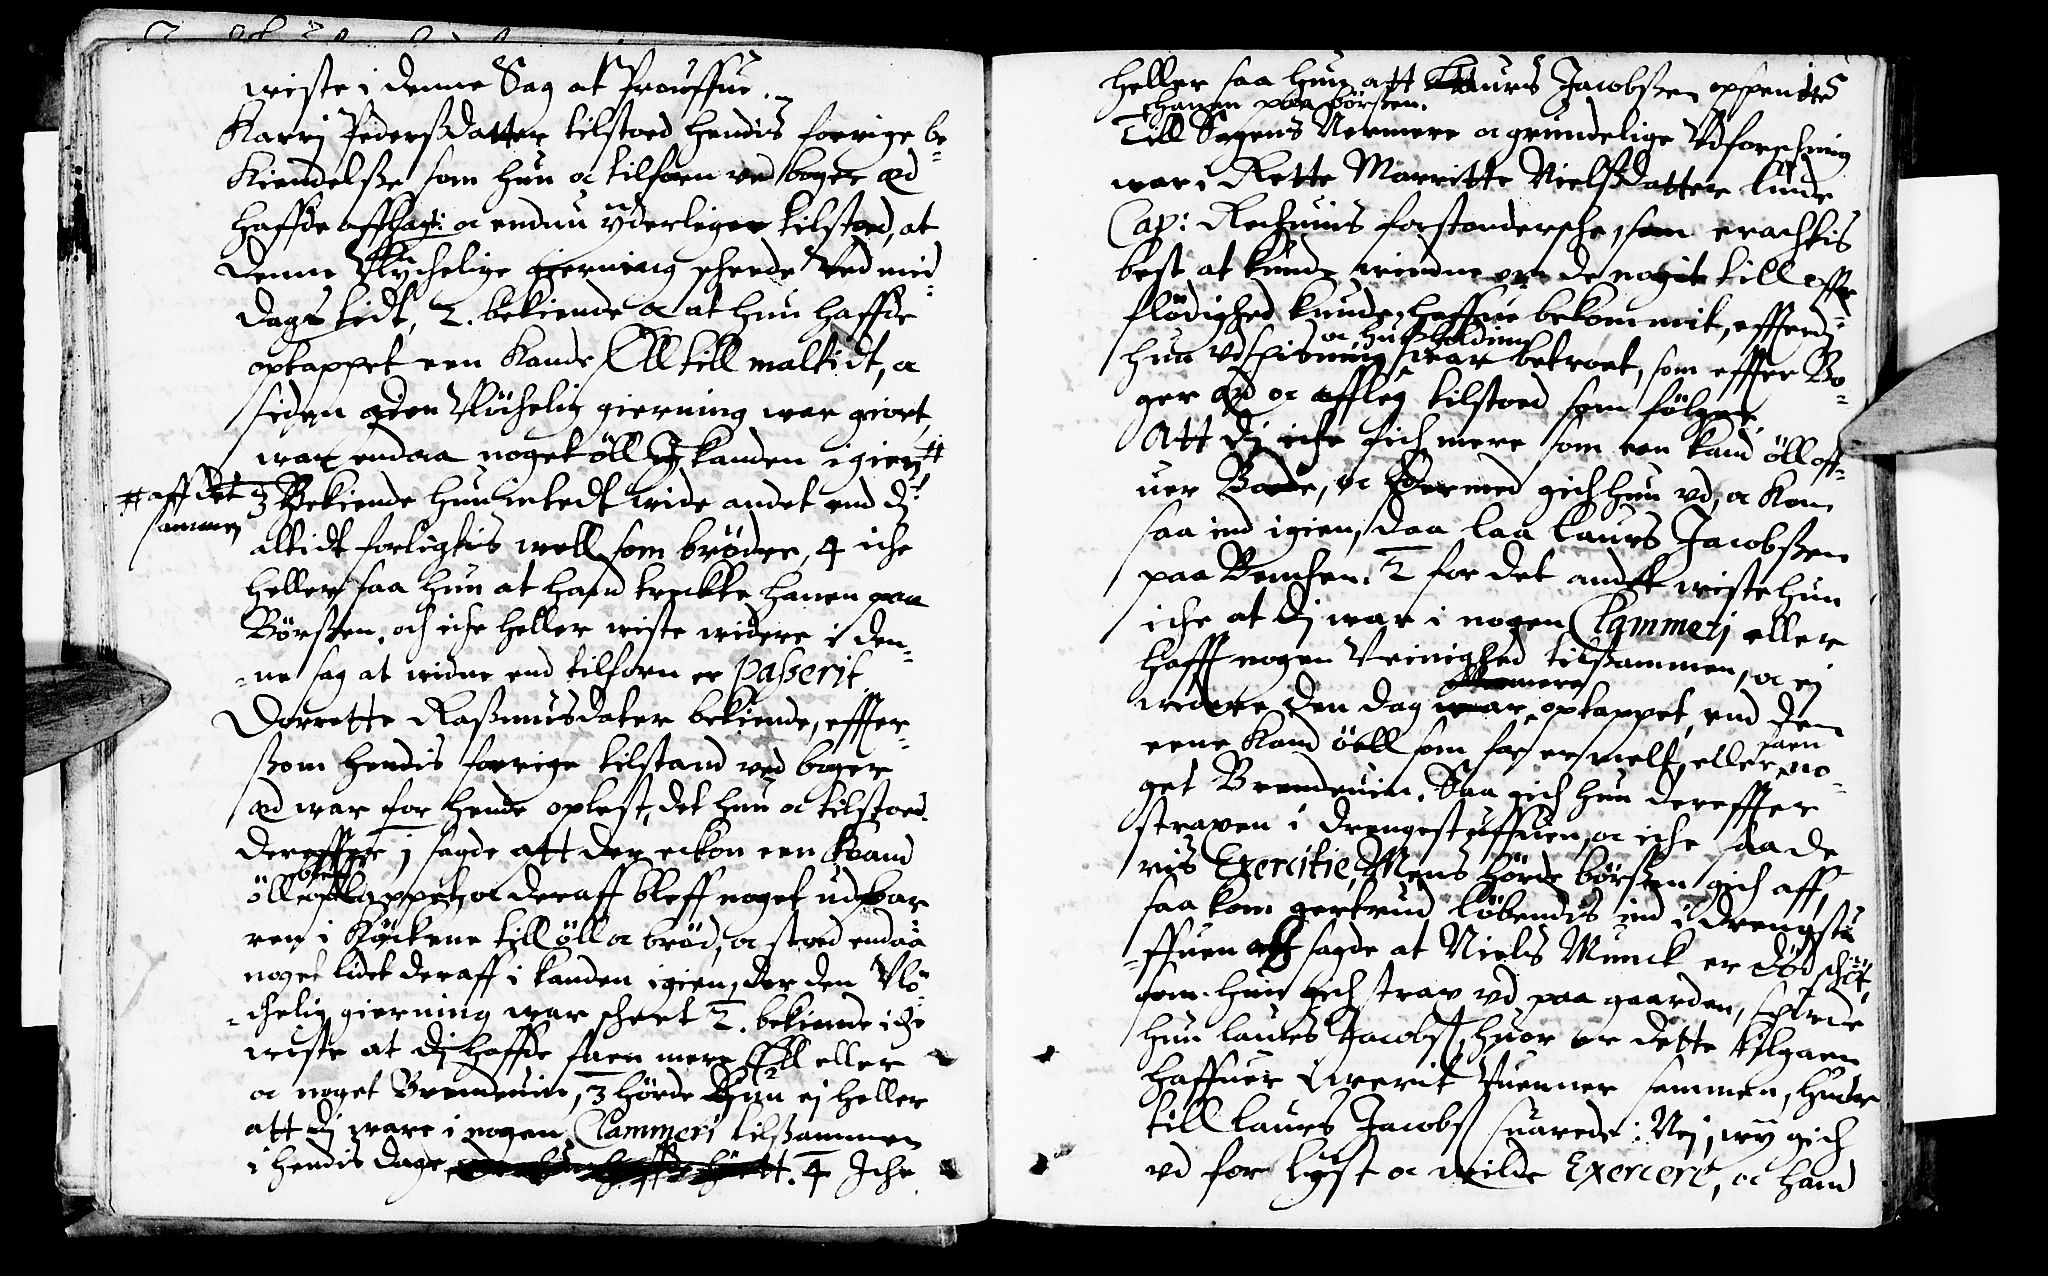 wiste i denne Sag at Prouffue.
Karri Pedersdatter tilstoed hendis forrige be-
Kiendelsse som hun oc tilforn ved boger æd
haffde afflagt oc endnu yderliger tilstoed, at
denne Vlychelige gierning scheede Ved mid-
dags tidt, 2. bekiende oc at hun haffde
optappet een Kande Öll till maltidt, oc
siden den Vlüchelig gierning war giort,
war endaa noget öll i kanden igien #
# aff det
sammen
3 Bekiende hun intedt wide andet end di
altidt forligtis well som brødre, 4 iche
heller saa hun at hand truckte hanen paa
Börssen, och iche heller wiste widere i den-
ne sag at widne end tilforn er Passerit
Dorrette Rassmusdater bekiende, effter-
ssom hendis forrige tilstand ved boger
æd war for hende oplest, det hun oc tilstoed.
dereffter 1 sagde att der eckon een Kand
öll bleff optappet, oc deraff bleff noget udbaar
ren i Kiöckene till öll oc brød, oc stoed endaa
noget lidet deraff i kanden igien, der den Vlö-
chelig gierning war scheet 2. bekiende iche
wiste at di haffde faaen mere Öll eller
oc noget Brendeuin, 3 hörde hun ej heller
att di ware i nogen Clammeri tilssammen
i hendis dage. 4 Iche
heller saa hun att Laurs Jacobssen opspente 5
hanen paa börssen.
Till Sagens Nermere oc grundelige Vdforschning
war i Rette Marritte Nielssdatter lunde
Cap: Rechuins forstandersche, som erachtis
best at kunde windne om de noget till offer-
flödighed kunde haffue bekommit, effterdi
hun vdspisning oc hussholdning war betroet, som effter Bo-
ger æd oc affleg tilstoed som fölger
Att di iche fich mere som een kand öll off-
uer Borde, oc Dermed gich hun vd, oc Kom
saa ind igien, daa laa Laurs Jacobssen
paa Benchen. 2 for det andet wiste hun
iche at di war i nogen Clammeri eller
hafft nogen Venighed tilssammen, oc ej
widere den dag optappet, end den
eene Kand öell som for er melt, eller faaen no-
get Brendeuin. Saa gich hun dereffter
straxen i Drengestuffuen, oc iche saa de-
ris Exercitie, Mens hörde börssen gich aff,
saa kom gertrud löbendis ind i drengestu-
ffuen sagde at Niels Munck er död schöt,
som hun gich strax vd paa gaarden, spurde
hun Laurs Jacobss, huor er dette tilgaen
haffuer i werit Vuenner sammen, huortil
till Laurs Jacobss suarede: Nej, wy gich
vd for lyst oc wilde Exercere, oc hand